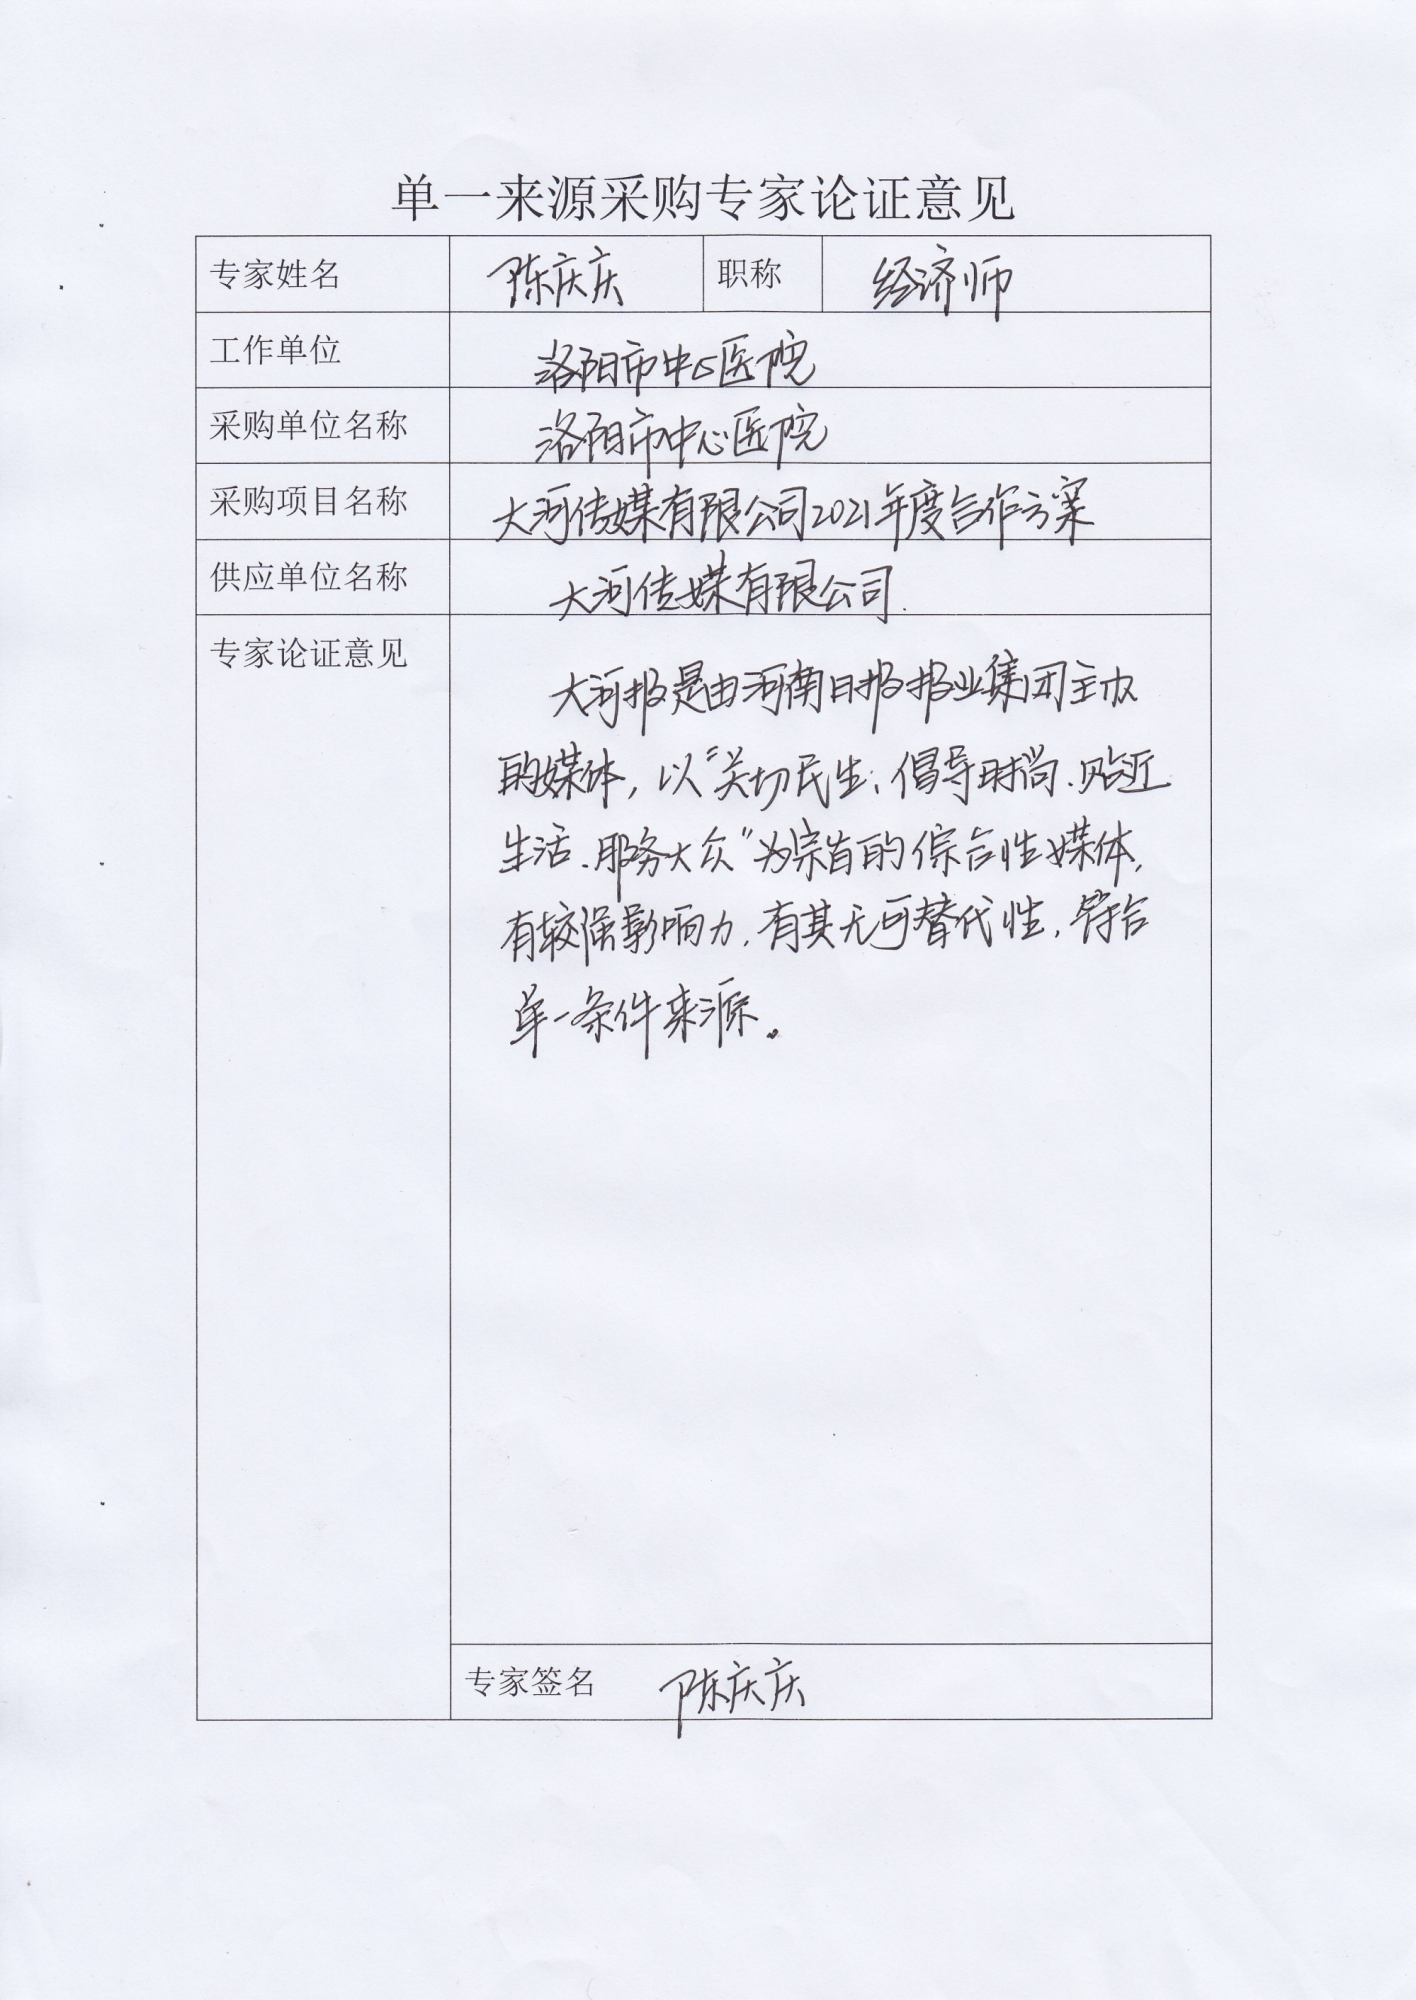 单一来源采购专家论证意见
专家姓名 陈庆庆 职称 经济师
工作单位 洛阳市中心医院
采购单位名称 洛阳市中心医院
采购项目名称 大河传媒有限公司2021年度合作方案
供应单位名称 大河传媒有限公司.
专家论证意见
大河报是由河南日报报业集团主办
的媒体，以“关切民生、倡导时尚、贴近
生活、服务大众”为宗旨的综合性媒体，
有较强影响力，有其无可替代性，符合
单一条件来源。
专家签名 陈庆庆